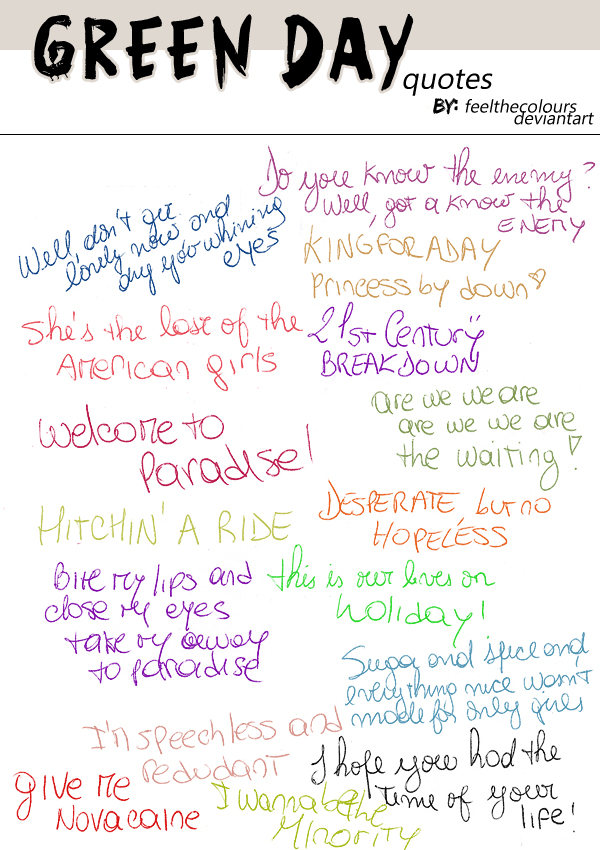 GREEN DAY
quotes
BY: feelthecolours
deviantart
Do you know the enemy?
Well, got a know the
ENEMY
Well, don't get
lonely now and
dry you whining
eyes
KING FOR A DAY
Princess by down
She's the last of the
American girls
21st Century
BREAKDOWN
are we we are
are we we are
the waiting!
Welcome to
Paradise!
DESPERATE but no
HOPELESS
HITCHIN' A RIDE
Bite my lips and
close my eyes
take my away
to paradise
this is our lives on
holiday!
Suga and spice and
everything nice wasn't
made for only girls
I'm speechless and
redudant
I hope you had the
time of your
life!
give me
Novacaine
I wanna be the
Minority